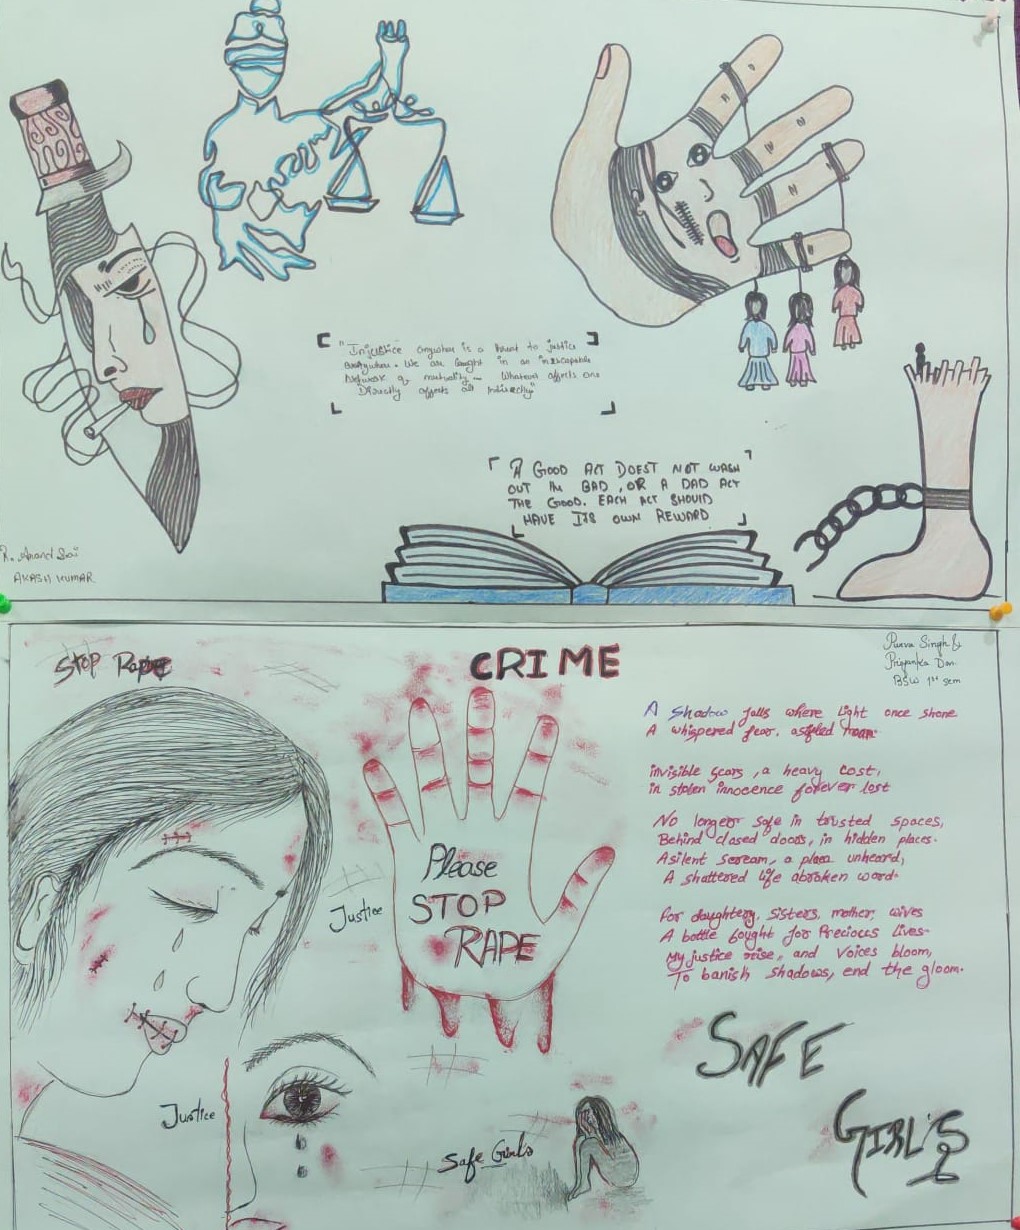 "Injustice anywhere is a threat to justice
everywhere. We are Caught in an inescapable
Network of mutuality - Whatever affects one
Directly affects all Indirectly"
A GOOD ACT DOEST NOT WASH
OUT THE BAD, OR A DAD ACT
THE GOOD. EACH ACT SHOULD
HAVE ITS OWN REWARD
R. Anand Sai
AKASH KUMAR
Stop Rape
CRIME
Purva Singh &
Priyanka
BSW 1st sem
A Shadow falls where light once shone
A whispered fear, a stifled
invisible scars, a heavy cost,
in stolen innocence forever lost
No longer safe in trusted spaces,
Behind closed doors, in hidden places.
Asilent scream, a plea unheard,
A shattered life abroken word.
Please
STOP
RAPE
Justice
For daughters, sisters, mother, wives
A battle fought for Precious lives-
My justice rise, and Voices bloom,
To banish shadows, end the gloom.
SAFE
GIRL'S
Justice
Safe Girls